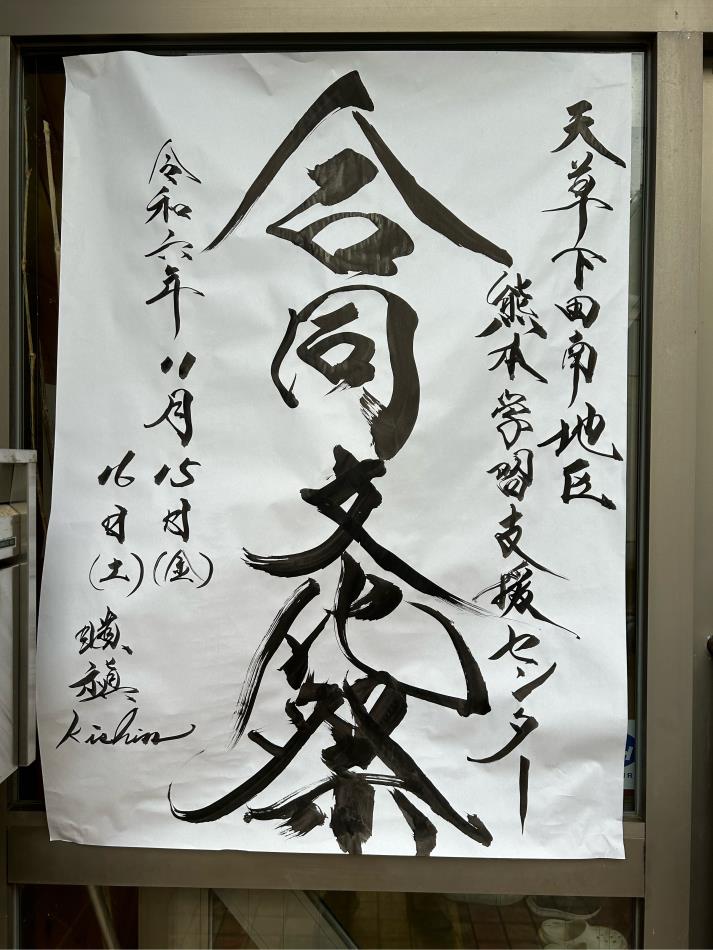 天草下田南地区
熊本学習支援センター
合同文化祭
令和六年 11月 15日(金)
16日(土)
Kishin